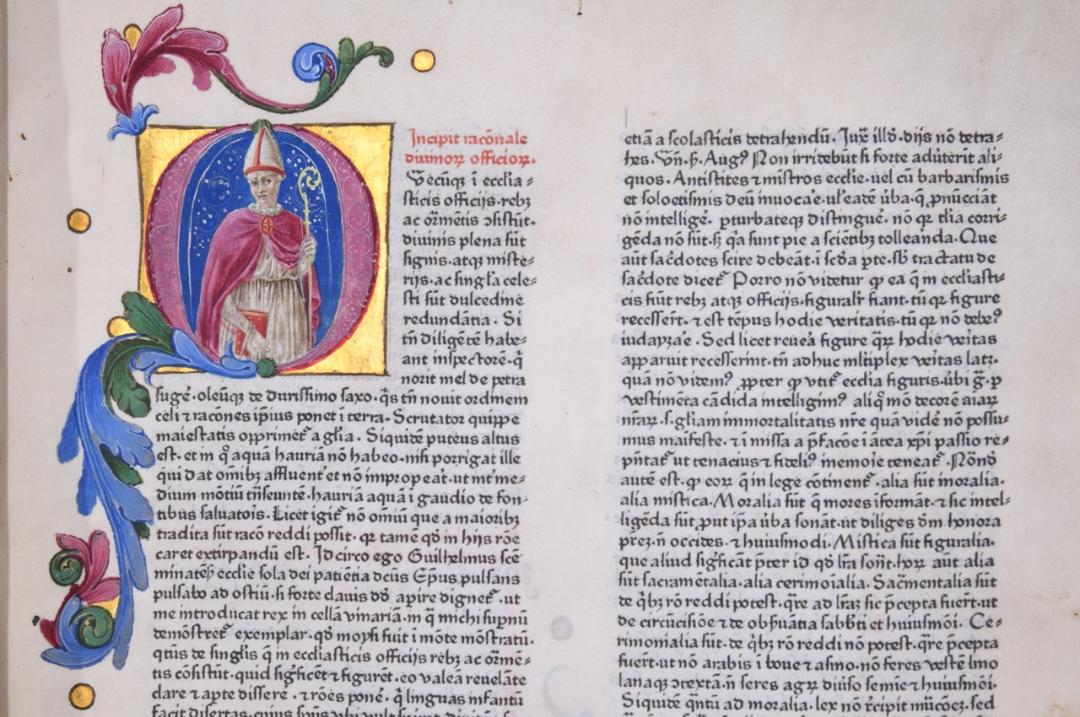 Incipit racõnale
diuinoꝝ officioꝝ.
Vecũqꝫ i ecclia⸗
sticis officijs·rebꝫ
ac oꝛ̃mẽtis ↄsistũt·
diuinis plena sũt
signis·atqꝫ miste⸗
rijs·ac singl̃a cele⸗
sti sũt dulcedine
redundãtia· Si
tñ diligẽtẽ habe⸗
ant inspectoꝛẽ·q̃
noꝛit mel de petra
sugẽ·oleũqꝫ de durissimo saxo· q̃s tñ nouit oꝛdinem
celi ⁊ racões ip̃ius ponet i terra· Scrutatoꝛ quippe
maiestatis oppꝛimet᷑ a gl̃ia· Siquidẽ puteus altus
est· et in q̃ aquã hauriã nõ habeo·nisi poꝛrigat ille
qui dat omĩbꝫ affluent᷑ et nõ impꝛopeat·ut mt᷑ me⸗
dium mõtiũ trãseuntẽ·hauriã aquã i gaudio de fon⸗
tibus saluatoꝛis·Licet igit᷑ nõ omiũ que a maioꝛibꝫ
tradita sũt racõ reddi possit· qꝛ tamẽ qð in hijs rõe
caret extirpandũ est· Id circo ego Guilhelmus scẽ
minateñ ecclie sola dei patiẽtia dc̃us Ep̃us pulsans
pulsabo ad ostiũ·si foꝛte clauis dð apire dignet᷑·ut
me introducat rex in cellã vinariã·in q̃ michi supnũ
demõstret᷑ exemplar·qð moysi fuit i mõte mõstratũ·
qt̃us de singlis q̃ in ecclãsticis officijs rebꝫ ac oꝛ̃mẽ⸗
tis cõsistũt·quid sigficẽt ⁊ figurẽt·eo valeã reuelãte
dare ⁊ apte dissere· ⁊ rões ponẽ· q̃ linguas infantũ
facit disertas·
etiã a scolasticis detrahendũ· Jux̃ illð·dijs nõ detra⸗
hes·Vñ·ꝧ·Augꝰ Non irridebũt si foꝛte adũterit ali⸗
quos· Antistites ⁊ mĩstros ecclie·uel cũ barbarismis
et soloecismis deũ inuocae·ul'eadẽ ũba·q̃ pnũciãt
nõ intelligẽ· pturbateqꝫ distinguẽ· nõ qꝛ tl̃ia coꝛri⸗
gẽda nõ sũt·ꝧ q̃a sunt pie a sciẽtibꝫ tolleanda· Que
aũt saẽdotes scire debeãt·i sc̃ða pte·sb̃ tractatu de
saẽdote dicet᷑ Poꝛro nõ videtur ꝙ ea q̃ in eccliasti⸗
cis fiũt rebꝫ atqꝫ officijs·figuralr̃ fiant·tũ qꝛ figure
recesserũt·⁊ est tẽpus hodie veritatis·tũ qꝛ nõ debeꝰ
iudayzae· Sed licet reuẽa figure q̃ꝝ hodie vẽitas
apparuit recesserint·tñ adhuc ml̃tiplex vẽitas latꝫ·
quã nõ videmꝰ· ppter ꝙ vtit᷑ ecclia figuris·ũbi g̃· p
vestimẽta cãdida intelligimꝰ aliq̃ mõ decoꝛẽ aiaꝝ
nr̃aꝝ·s·gl̃iam immoꝛtalitatis nr̃e quã vidẽ nõ possu⸗
mus maifeste· ⁊ i missa a p̃facõe i ãtea xp̃i passio re⸗
pñtat᷑ ut tenacius ⁊ fideliꝰ memoꝛie teneat᷑· Nõnð
autẽ est·ꝙ eoꝝ q̃ in lege cõtinent᷑·alia sũt moꝛalia·
alia mistica· Moꝛalia sũt q̃ moꝛes ifoꝛmãt·⁊ sic intel⸗
ligẽda sũt put ip̃a ũba sonãt·ut diliges dm̃ honoꝛa
p̃rez·ñ occides·⁊ huiusmodi· Mistica sũt figuralia·
que aliud sigficãt p̃ter id qð lr̃a sont̃·hoꝝ aũt alia
sũt sacramẽtalia·alia cerimoĩalia· Sac̃mẽtalia sũt
de q̃bꝫ rõ reddi potest·q̃re ad lr̃az sic p̃cepta fuert̃·ut
de circũcisiõe ⁊ de obsũatia sabb̃ti et huiusmõi· Ce⸗
rimonialia sũt·de q̃bꝫ rõ reddi nõ potest·q̃re p̃cepta
fuert̃·ut nõ arabis i boue ⁊ asino·nõ feres vestẽ lĩno
lanaqꝫ ↄtextã·ñ seres agꝝ diũso semie ⁊ huiusmõi·
Siquidẽ q̃ntũ ad moꝛalia·lex nõ rc̃ipit mũcõeꝫ·sed